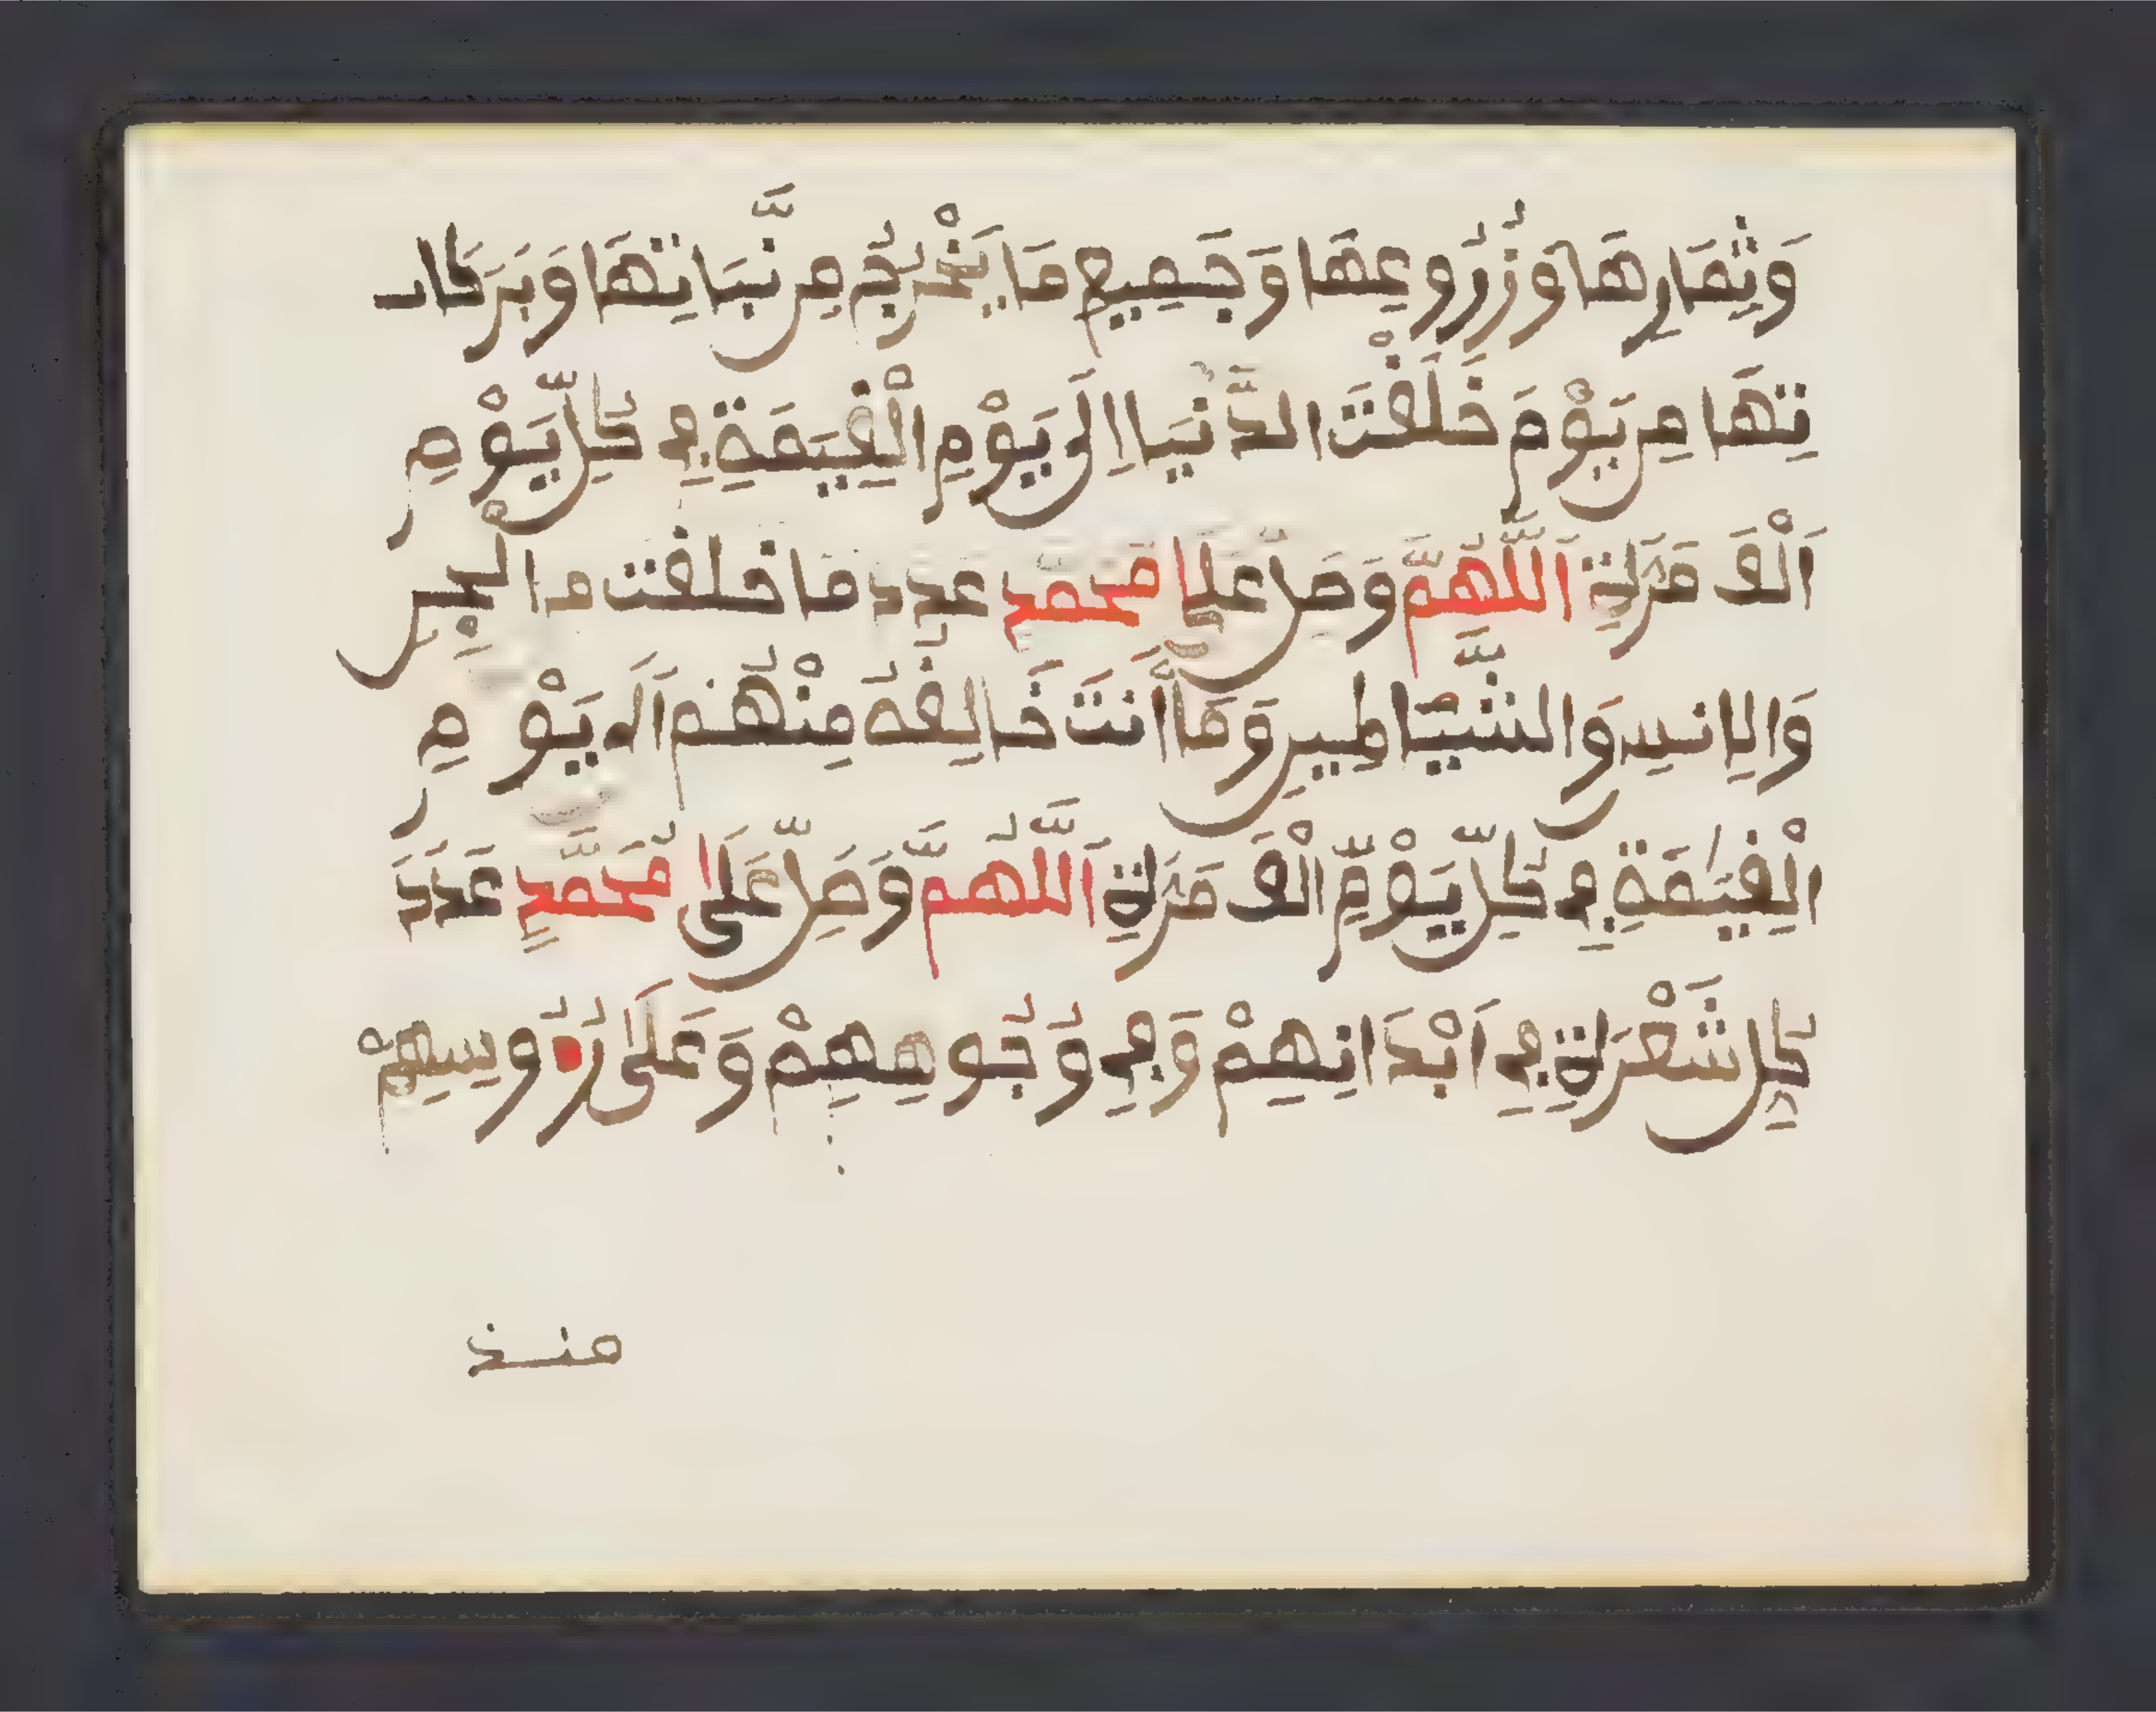 وَثِمَارِهَا وَزُرُوعِهَا وَجَمِيعِ مَا يَخْرُجُ مِن نَّبَاتِهَا وَبَرَكَا
تِهَا مِن يَوْمَ خَلَقْتَ الدُّنْيَا اِلَى يَوْمِ الْقِيَمَةِ فِي كُلِّ يَوْمٍ
اَلْفَ مَرَّةٍ اَللَّهُمَّ وَصَلِّ عَلَى مُحَمَّدٍ عَدَدَ مَا خَلَقْتَ مِنَ الْجِنِّ
وَالِانسِ وَالشَّيَاطِينِ وَمَا أَنتَ خَالِقُهُ مِنْهُمْ اِلَى يَوْمِ
الْقِيَمَةِ فِي كُلِّ يَوْمٍ اَلْفَ مَرَّةٍ اَللَّهُمَّ وَصَلِّ عَلَى مُحَمَّدٍ عَدَدَ
كُلِّ شَعْرَةٍ فِي اَبْدَانِهِمْ وَفِي وُجُوهِهِمْ وَعَلَى رُءُوسِهِمْ
منذ